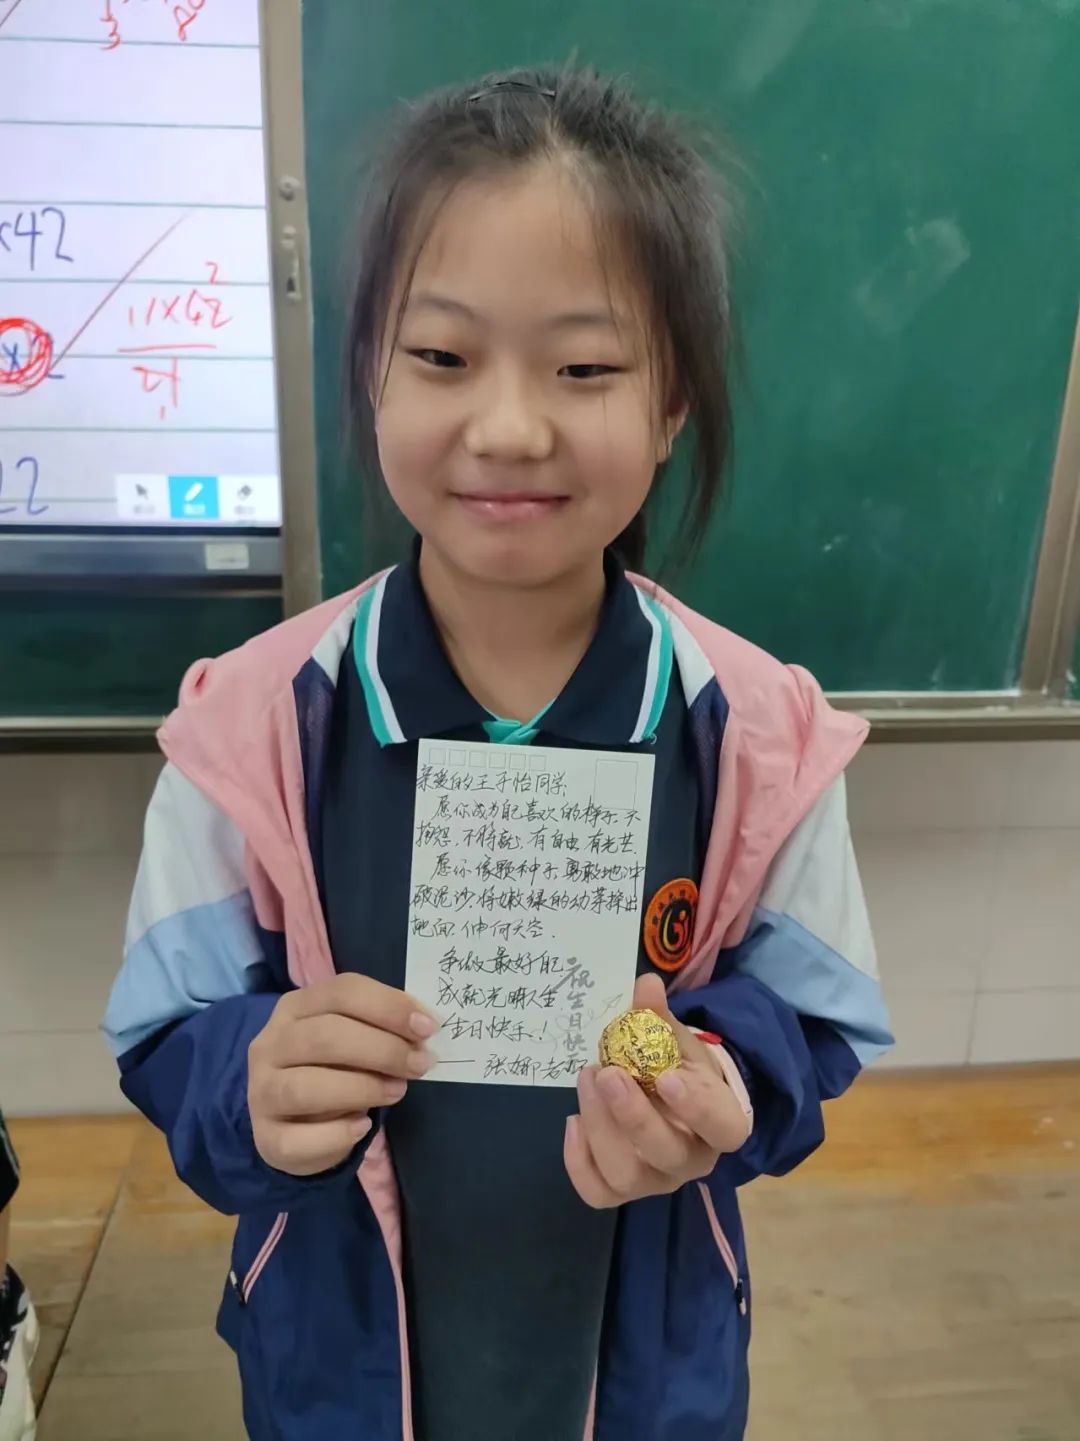 ×42
2
11×42
21
1
22
亲爱的王子怡同学:
愿你成为自己喜欢的样子,不
抱怨,不将就,有自由,有光芒.
愿你像颗种子,勇敢地冲
破泥沙,将嫩绿的幼芽探出
地面,伸向天空.
争做最好自己
成就光明人生
生日快乐!
——张娜老师
祝生日快乐